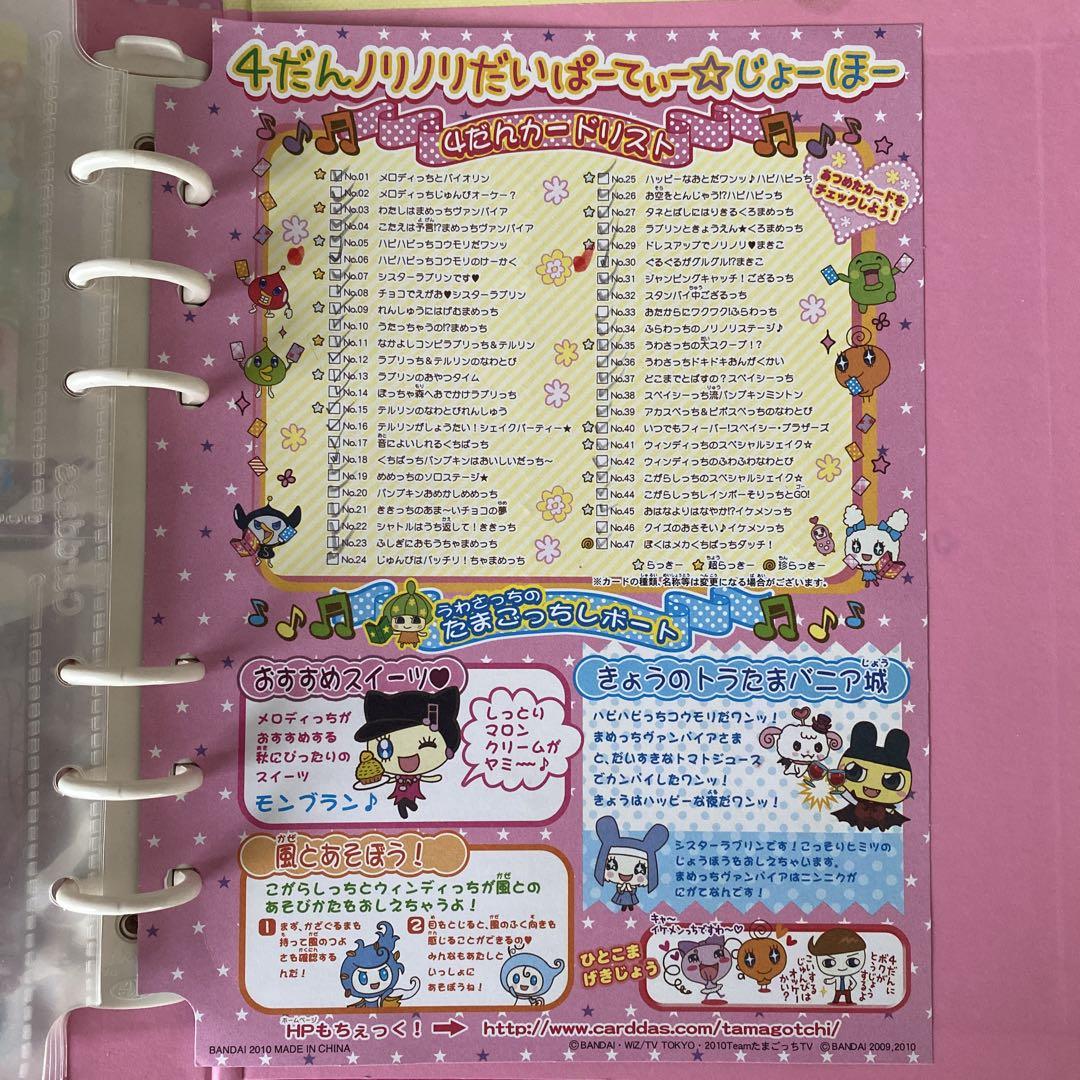 4だんノリノリだいぱーてぃー☆じょーほー
4だんカードリスト
あつめたカードを
チェックしよう!
☆ No.01 メロディっちとバイオリン
No.02 メロディっちじゅんびオーケー?
☆ No.03 わたしはまめっちヴァンパイア
No.04 こたえは予言!?まめっちヴァンパイア
☆ No.05 ハピハピっちコウモリだワンッ
No.06 ハピハピっちコウモリのけーかく
☆ No.07 シスターラブリンです♥
No.08 チョコでえがお♥シスターラブリン
☆ No.09 れんしゅうにはげむまめっち
No.10 うたっちゃうの!?まめっち
☆ No.11 なかよしコンビラブリっち&テルリン
No.12 ラブリっち&テルリンのなわとび
☆ No.13 ラブリンのおやつタイム
No.14 ぼっちゃ森へおでかけラブリっち
☆ No.15 テルリンのなわとびれんしゅう
No.16 テルリンがしょうたい!シェイクパーティー★
No.17 音によいしれるくちぱっち
No.18 くちぱっちパンプキンはおいしいだっち~
No.19 めめっちのソロステージ★
No.20 パンプキンおめかしめめっち
No.21 ききっちのあま~いチョコの夢
No.22 シャトルはうち返して!ききっち
No.23 ふしぎにおもうちゃまめっち
No.24 じゅんびはバッチリ!ちゃまめっち
☆ No.25 ハッピーなおとだワンッ♪ハピハピっち
No.26 お空をとんじゃう!?ハピハピっち
☆ No.27 タネとばしにはりきるくろまめっち
No.28 ラブリンときょうえん★くろまめっち
☆ No.29 ドレスアップでノリノリ♥まきこ
No.30 ぐるぐるがグルグル!?まきこ
No.31 ジャンピングキャッチ!ござるっち
No.32 スタンバイ中ござるっち
No.33 おたからにワクワク!ふらわっち
No.34 ふらわっちのノリノリステージ♪
☆ No.35 うわさっちの大スクープ!?
No.36 うわさっちドキドキおんがくかい
No.37 どこまでとばすの?スペイシーっち
No.38 スペイシーっち流パンプキンミントン
No.39 アカスペっち&ピポスペっちのなわとび
☆ No.40 いつでもフィーバー!スペイシー・ブラザーズ
☆ No.41 ウィンディっちのスペシャルシェイク☆
No.42 ウィンディっちのふわふわなわとび
☆ No.43 こがらしっちのスペシャルシェイク☆
No.44 こがらしっちレインボーそりっちとGO!
☆ No.45 おはなよりはなやか!?イケメンっち
No.46 クイズのおさそい♪イケメンっち
No.47 ぼくはメカくちぱっちダッチ!
☆らっきー ☆超らっきー 珍らっきー
※カードの種類、名称等は変更になる場合がございます。
うわさっちの
たまごっちレポート
おすすめスイーツ♥
メロディっちが
おすすめする
秋にぴったりの
スイーツ
モンブラン♪
しっとり
マロン
クリームが
ヤミ~~♪
きょうのトラたまバニア城
ハピハピっちコウモリだワンッ!
まめっちヴァンパイアさま
と、だいすきなトマトジュース
でカンパイしたワンッ!
きょうはハッピーな夜だワンッ!
シスターラブリンです!こっそりヒミツの
じょうほうをおしえちゃいます。
まめっちヴァンパイアはニンニクが
にがてなんです!
風とあそぼう!
こがらしっちとウィンディっちが風との
あそびかたをおしえちゃうよ!
1 まず、かざぐるまを
持って風のつよ
さを確認する
んだ!
2 目をとじると、風のふく向きを
感じることができるの♥
みんなもあたしと
いっしょに
あそぼうね!
ひとこま
げきじょう
キャ~
イケメンっちですわ~♡
4だんに
ボクが
とうじょうするよ
こいするじゅんびは
オッケーかい?
HPもちぇっく! ➡ http://www.carddas.com/tamagotchi/
BANDAI 2010 MADE IN CHINA
©BANDAI・WiZ/TV TOKYO・2010TeamたまごっちTV ©BANDAI 2009,2010